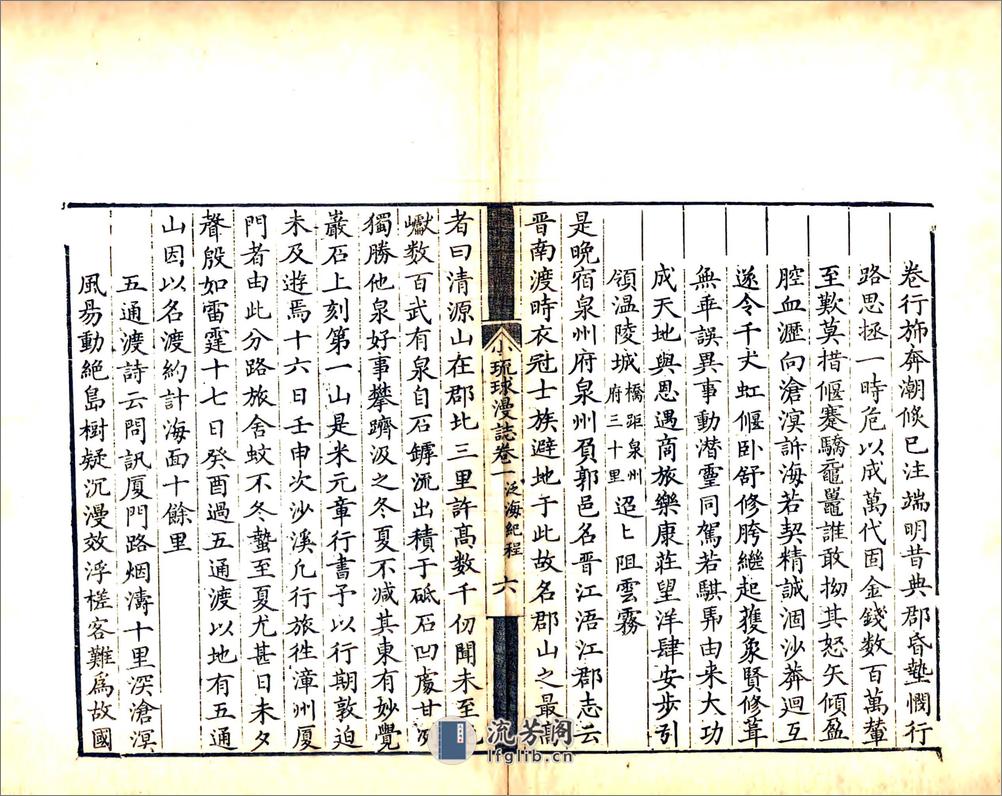 卷行斾奔潮候已注端明昔典郡昏墊憫行
路思拯一時危以成萬代固金錢数百萬輦
至歎莫措偃蹇驕黿鼉誰敢拗其怒矢傾盈
腔血瀝向滄溟訴海若契精誠涸沙莽迴互
遂令千丈虹偃卧舒修胯繼起獲象賢修葺
無乖誤異事動潜靈同駕若騏馵由来大功
成天地與思遇商旅樂康莊望洋肆安步引
領温陵城橋距泉州府三十里迢匕阻雲霧
是晚宿泉州府泉州負郭邑名晋江浯江郡志云
晋南渡時衣冠士族避地于此故名郡山之最
小琉球漫誌卷一 泛海紀程 六
者曰清源山在郡北三里許高数千仞聞未至
巘数百武有泉自石罅流出積于砥石凹處甘
獨勝他泉好事攀躋汲之冬夏不减其東有妙覺
巖石上刻第一山是米元章行書予以行期敦迫
未及遊焉十六日壬申次沙溪凢行旅徃漳州厦
門者由此分路旅舍蚊不冬蟄至夏尤甚日未夕
聲殷如雷霆十七日癸酉過五通渡以地有五通
山因以名渡約計海面十餘里
五通渡詩云問訊厦門路烟濤十里深滄溟
風易動絶島樹疑沉漫效浮槎客難爲故國
流芳閣
lfglib.cn